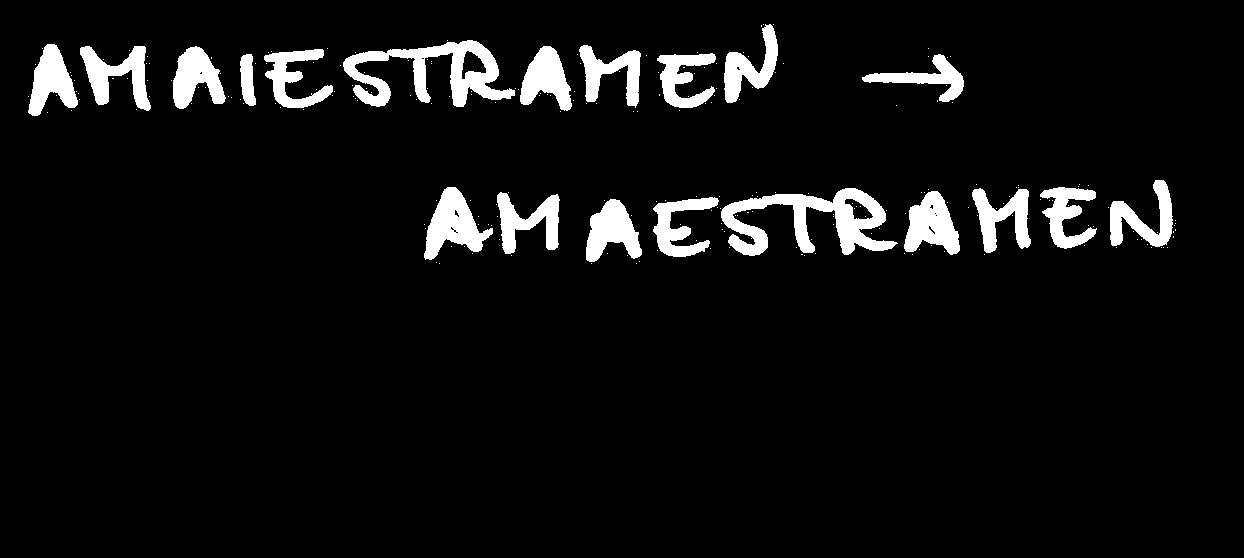 AMAIESTRAMEN →
AMAESTRAMEN